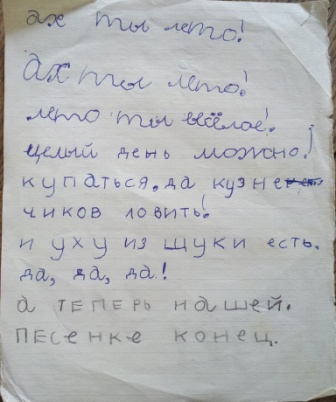 ах ты лето!
Ах ты лето!
лето ты весёлое!
целый день можно!
купаться. да кузне
чиков ловить!
и уху из щуки есть.
да, да, да!
а теперь нашей.
песенке конец.